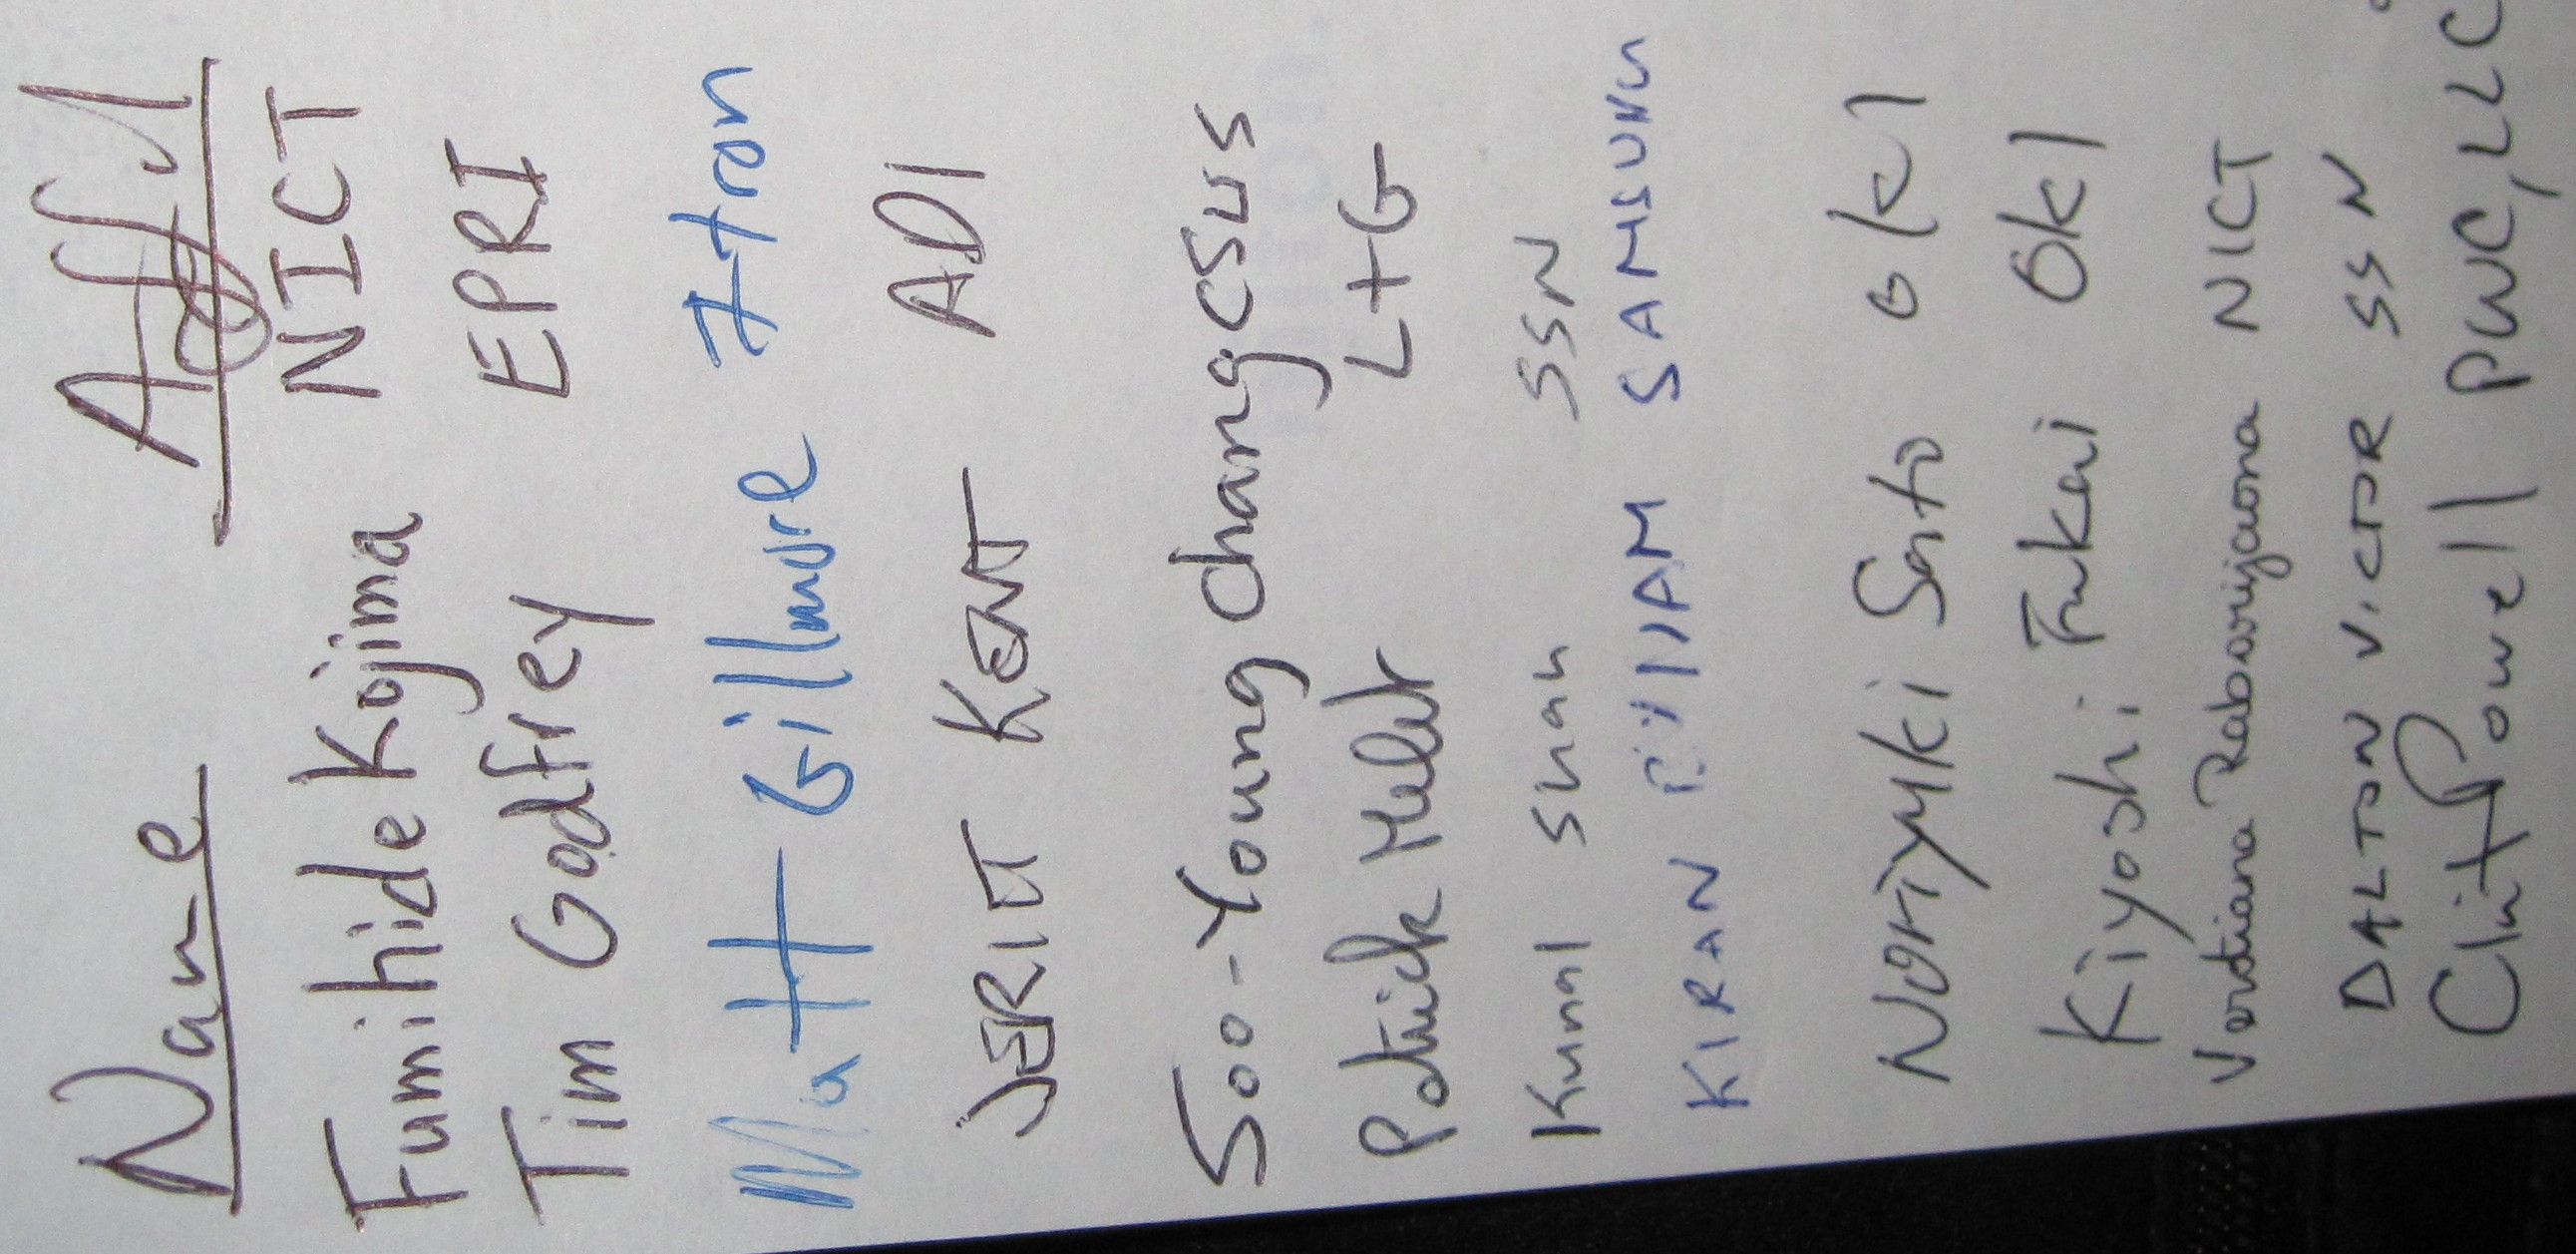 Name Affil
Fumihide Kojima NICT
Tim Godfrey EPRI
Matt Gillmore Itron
JERITT KENT ADI
Soo-Young Chang CSUS
Patrick L+G
Kunal Shah SSN
KIRAN SAMSUNG
Noriyuki Sato OKI
Kiyoshi Fukui OKI
Verotiana Rabarijaona NICT
DALTON VICTOR SSN
Clint Powell PWC, LLC